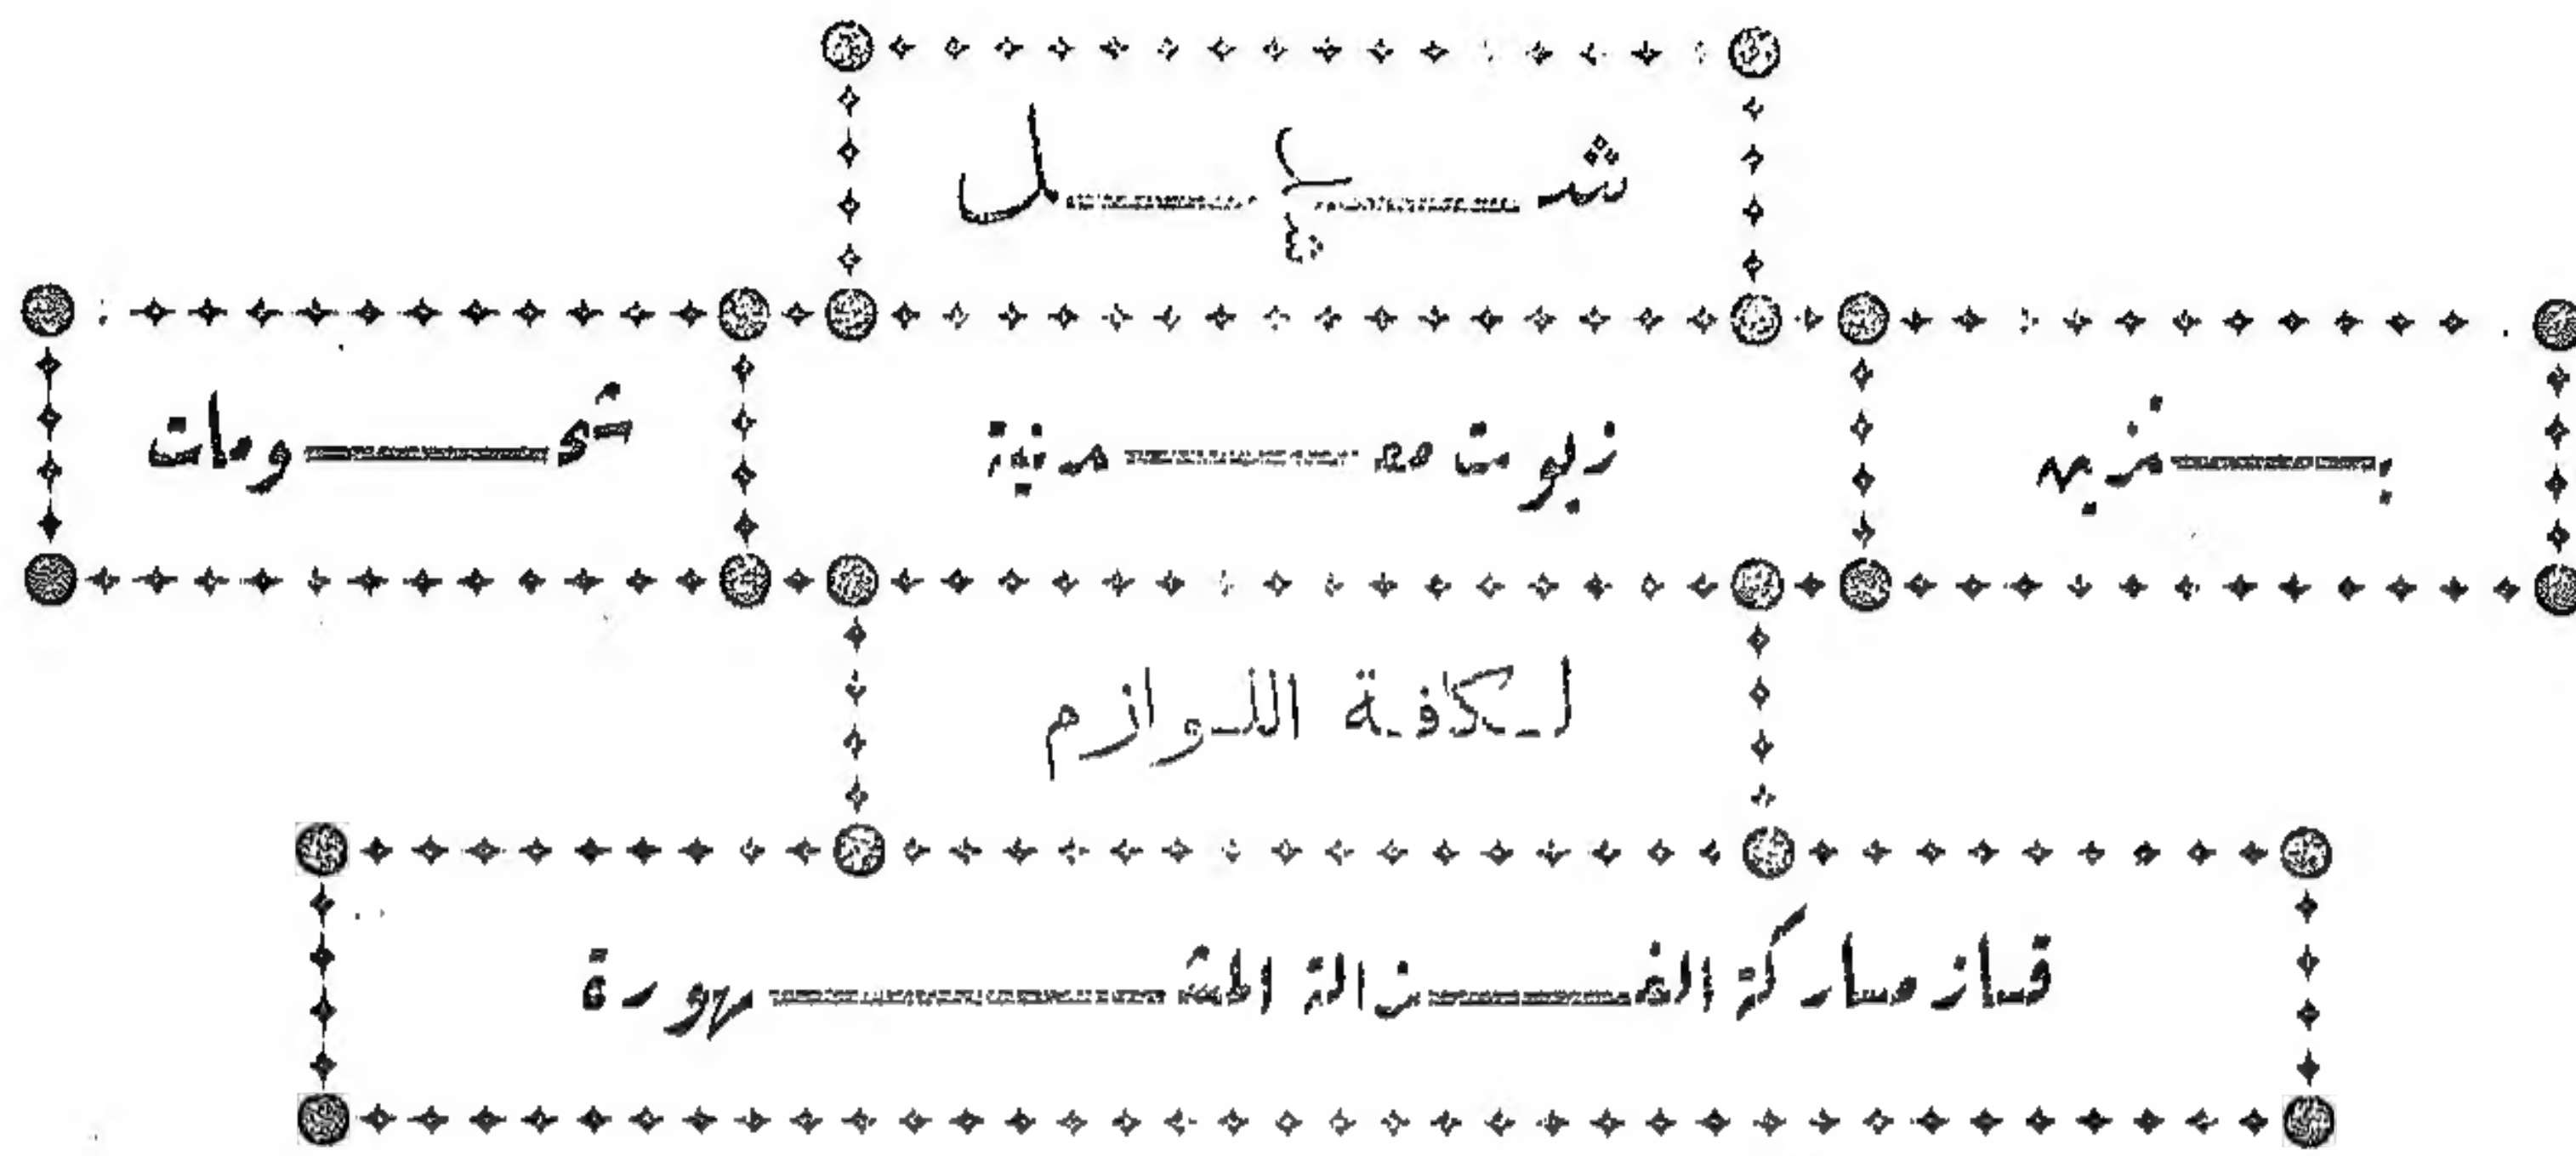 شيل
بنزين زيوت معدنية شحومات
لكافة اللوازم
قاز ماركة الغزالة المشهورة